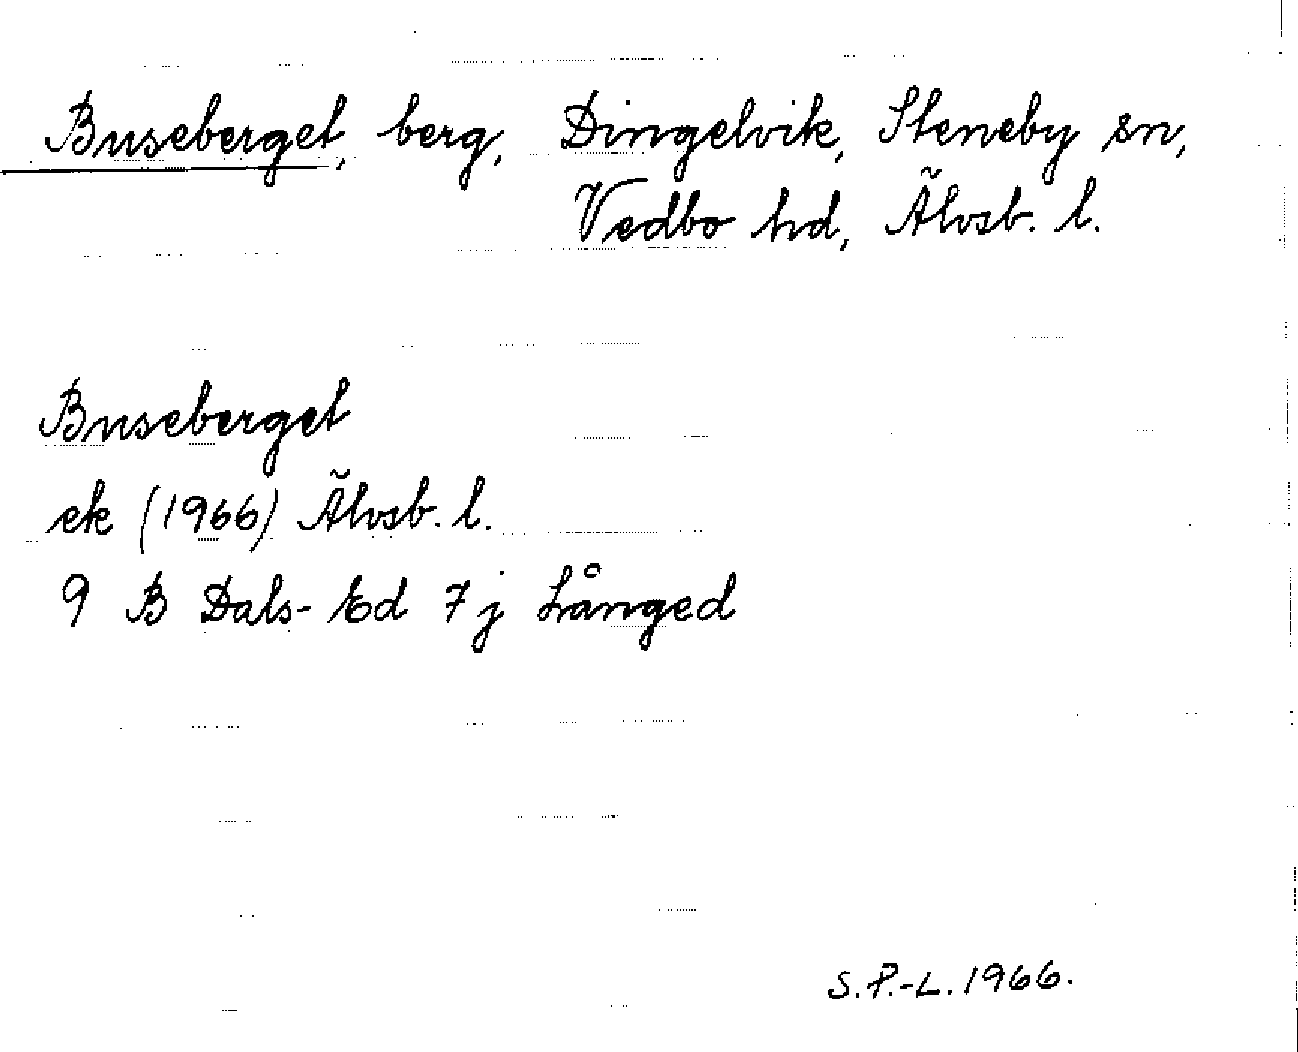 Buseberget, berg, Dingelvik, Steneby sn,
Vedbo hd, Älvsb. l.
Buseberget
ek (1966) Älvsb. l.
9 B Dals-Ed 7 j Långed
S.P.-L. 1966.